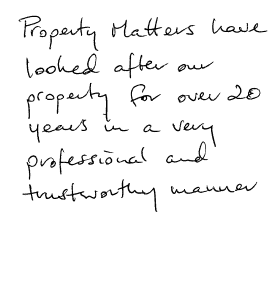 Property Matters have
looked after our
property for over 20
years in a very
professional and
trustworthy manner